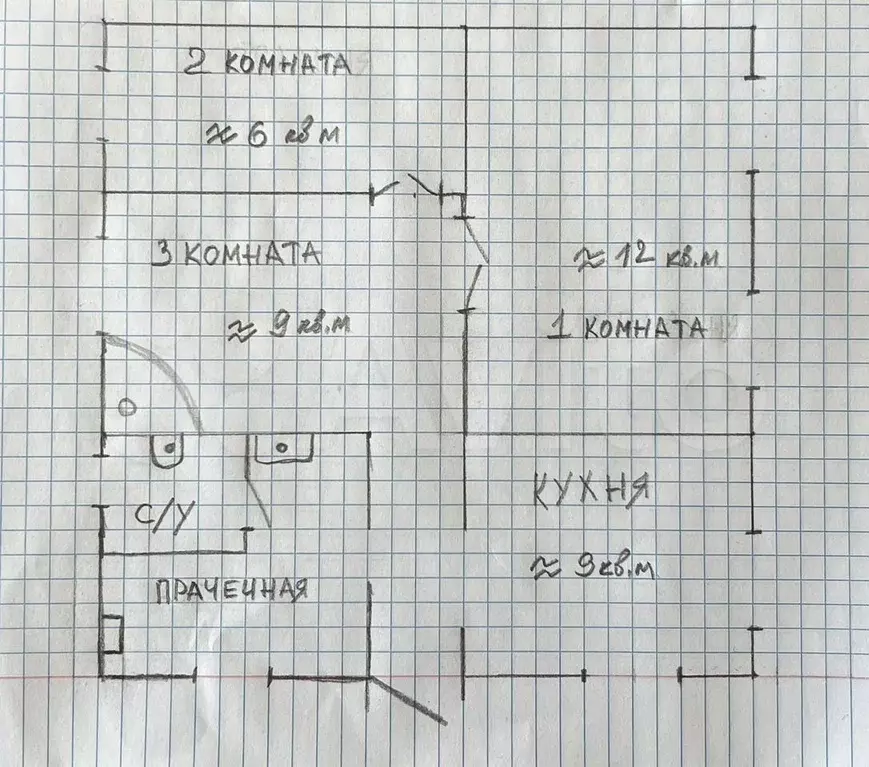 2 КОМНАТА
≈ 6 кв м
3 КОМНАТА
≈ 9 кв.м
≈ 12 кв.м
1 КОМНАТА
КУХНЯ
≈ 9 кв.м
С/У
ПРАЧЕЧНАЯ